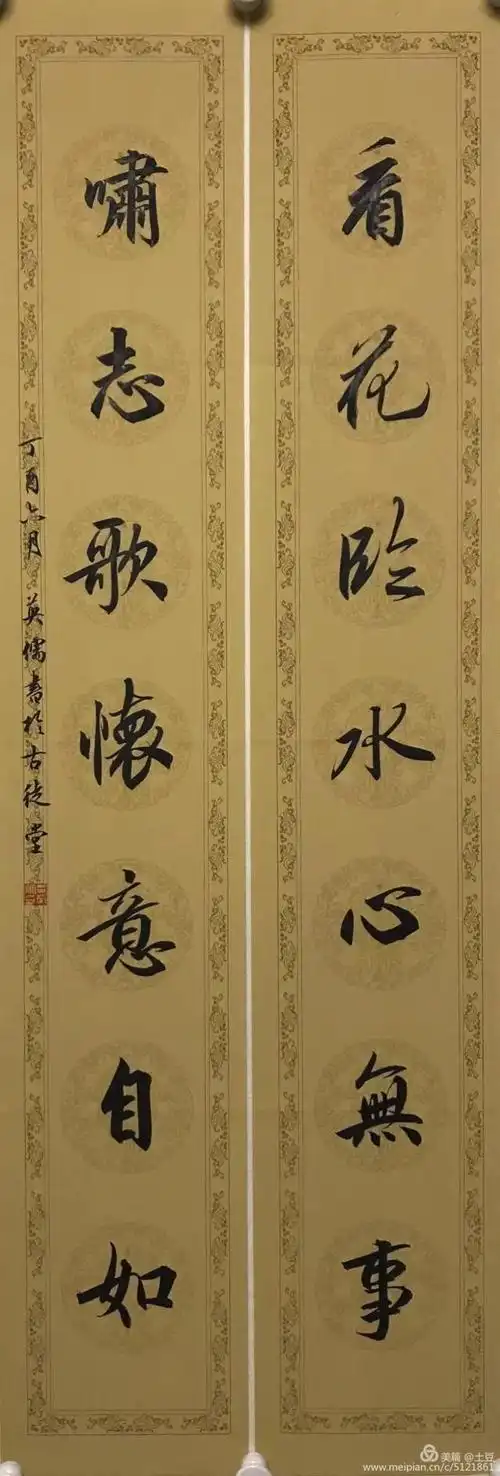 看花臨水心無事
嘯志歌懷意自如
丁酉六月 英儒書於古徒堂
美篇 @土豆
www.meipian.com/c/5121861